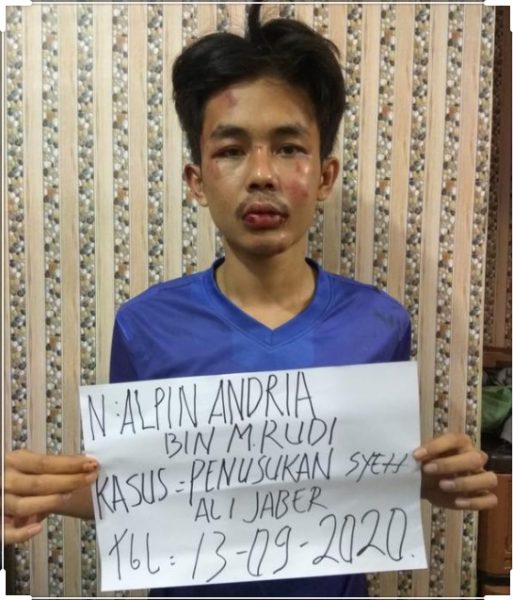 N: ALPIN ANDRIA
BIN M.RUDI
KASUS = PENUSUKAN SYEH
ALI JABER
TGL = 13-09-2020.